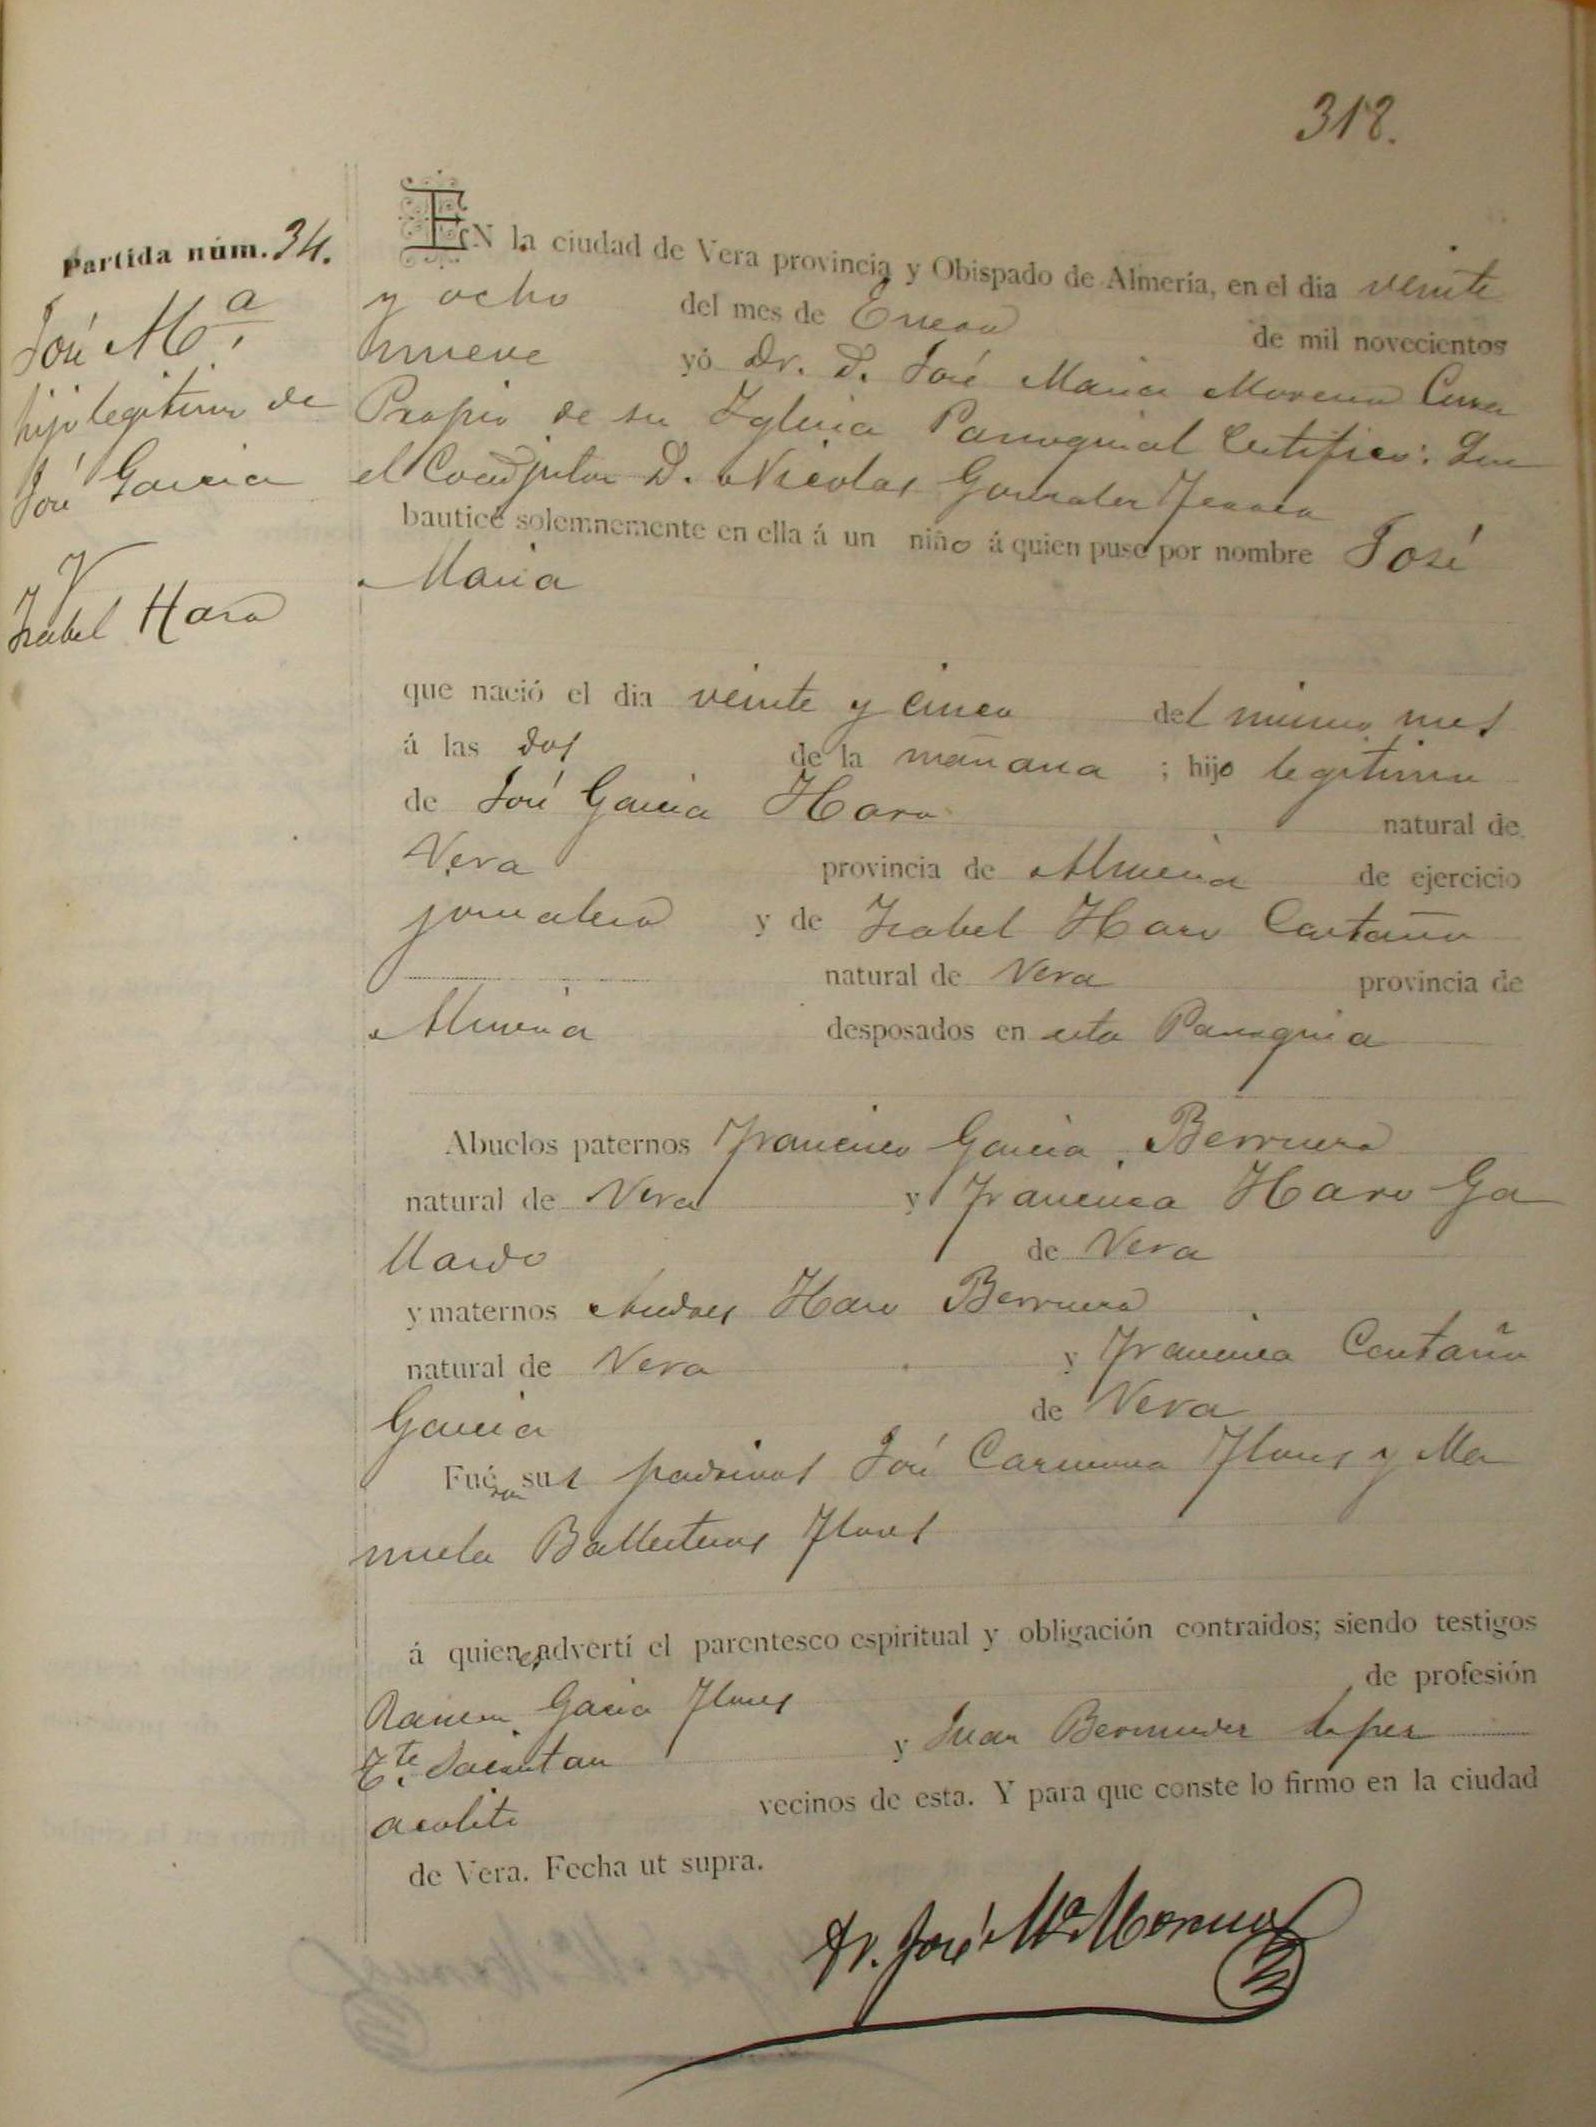 318.
Partida núm. 34.
José Mª,
hijo legitimo de
José Garcia
y
Isabel Haro
EN la ciudad de Vera provincia y Obispado de Almería, en el dia veinte
y ocho del mes de Enero de mil novecientos
nueve yó Dr. D. José Maria Moreno Cura
Propio de su Iglesia Parroquial Certifico: Que
el Coadjutor D. Nicolas Gonzalez
bauticé solemnemente en ella á un niño á quien puse por nombre José
Maria
que nació el dia veinte y cinco del mismo mes
á las dos de la mañana ; hijo legitimo
de José Garcia Haro natural de
Vera provincia de Almeria de ejercicio
jornalero y de Isabel Haro Castaño
natural de Vera provincia de
Almeria desposados en esta Parroquia
Abuelos paternos Francisco Garcia Berruezo
natural de Vera y Francisca Haro Ga
llardo de Vera
y maternos Andres Haro Berruezo
natural de Vera y Francisca Castaño
Garcia de Vera
Fuéron sus padrinos José Carmona Flores y Ma
nuela Ballesteros Flores
á quienes advertí el parentesco espiritual y obligación contraidos; siendo testigos
Ramon Garcia Flores de profesión
Tte. Sacristan y Juan Bermudez Lopez
acolito vecinos de esta. Y para que conste lo firmo en la ciudad
de Vera. Fecha ut supra.
Dr. José Mª Moreno